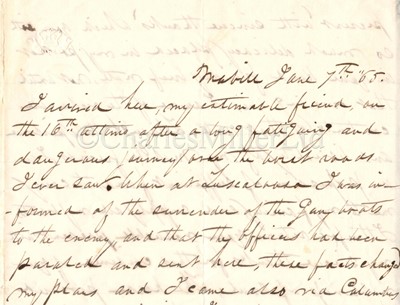 Mobill June 7th '65.
I arrived here my estimable friend on
the 16th ultimo after a long fatiguing and
dangerous survey over the worst roads
I ever saw. When at Tuscaloosa I was in-
-formed of the surrender of the Gun boats
to the enemy, and that the Officers had been
paroled and sent here, these facts changed
my plans and I came also via Columbus
© Charles Miller Ltd